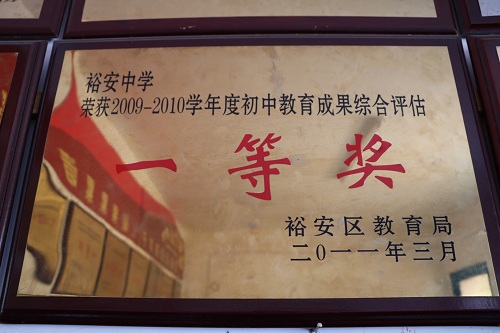 裕安中学
荣获2009-2010学年度初中教育成果综合评估
一等奖
裕安区教育局
二〇一一年三月